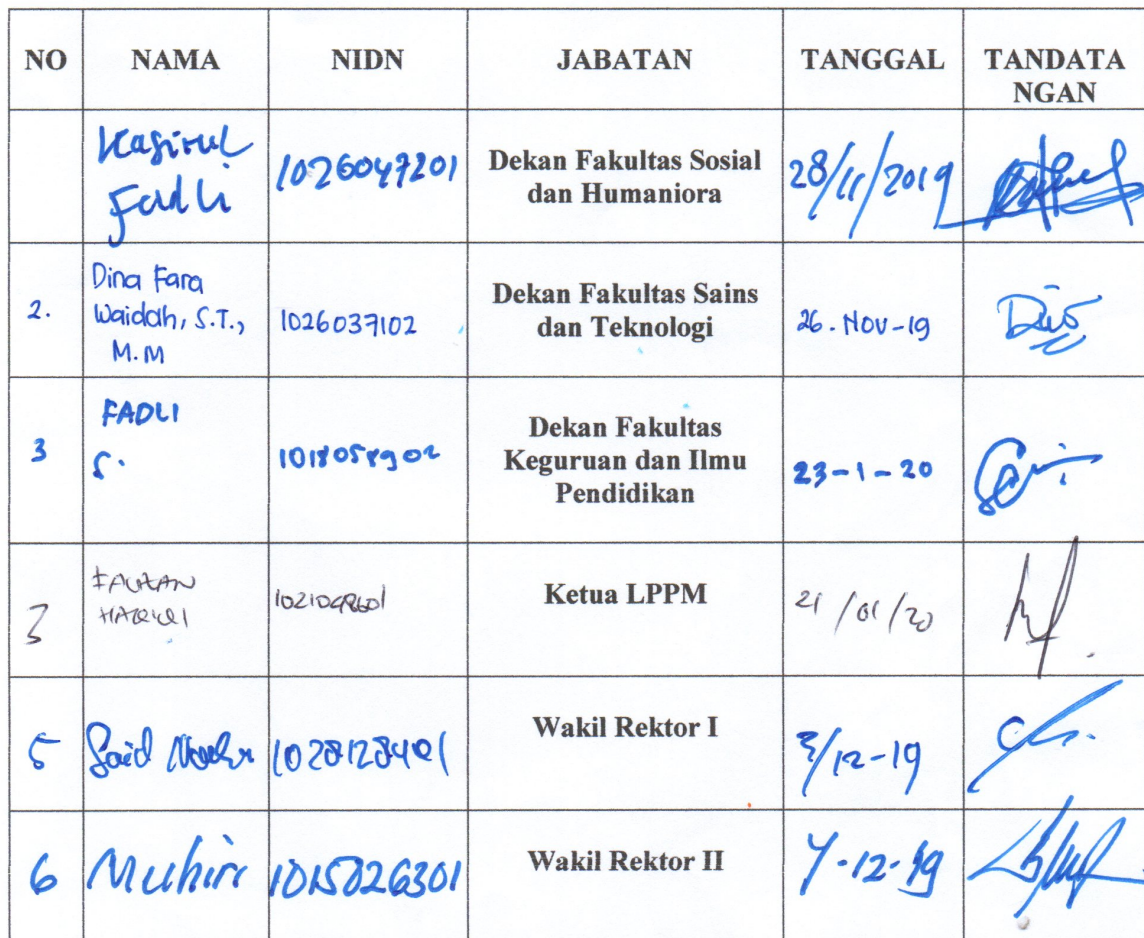 NO NAMA NIDN JABATAN TANGGAL TANDATA
NGAN
Kasirul
Fadli
1026047201 Dekan Fakultas Sosial
dan Humaniora
28/11/2019
2. Dina Fara
Waidah, S.T.,
M.M
1026037102 Dekan Fakultas Sains
dan Teknologi
26. Nov-19
3 FADLI
S.
1018058902 Dekan Fakultas
Keguruan dan Ilmu
Pendidikan
23-1-20
3 Ketua LPPM 21/01/20
5 Said 1028128401 Wakil Rektor I 3/12-19
6 1015026301 Wakil Rektor II